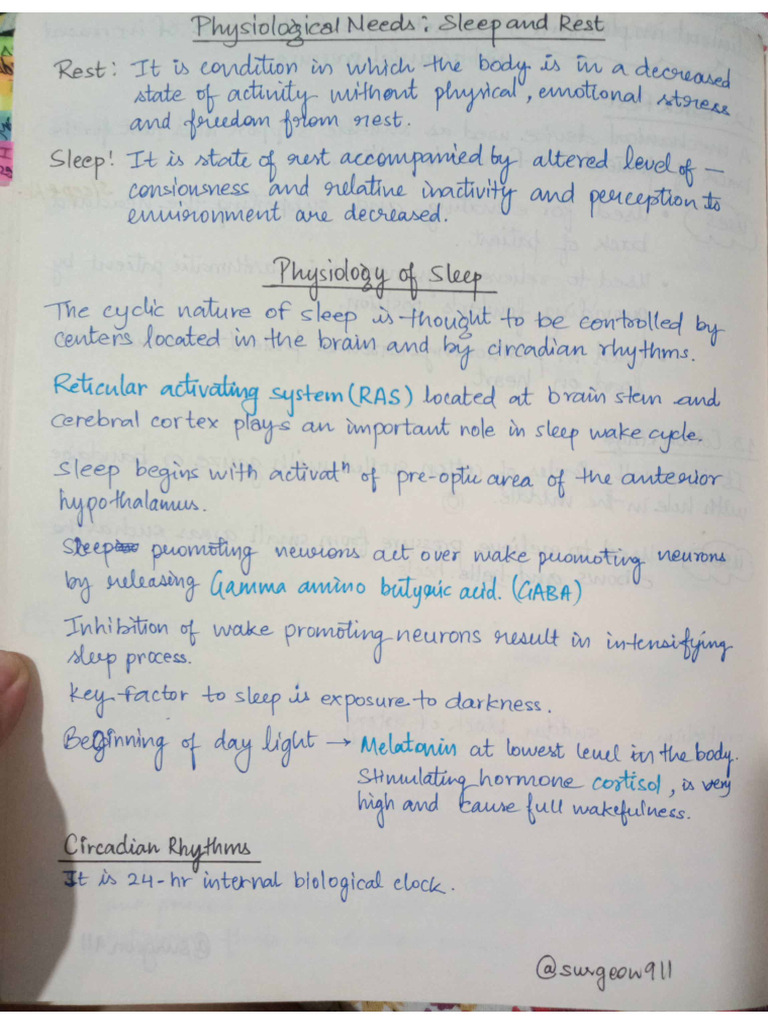 Physiological Needs: Sleep and Rest
Rest: It is condition in which the body is in a decreased
state of activity without physical, emotional stress
and freedom from rest.
Sleep: It is state of rest accompanied by altered level of –
consiousness and relative inactivity and perception to
environment are decreased.
Physiology of Sleep
The cyclic nature of sleep is thought to be controlled by
centers located in the brain and by circadian rhythms.
Reticular activating system (RAS) located at brain stem and
cerebral cortex plays an important role in sleep wake cycle.
Sleep begins with activatⁿ of pre-optic area of the anterior
hypothalamus.
Sleep promoting neurons act over wake promoting neurons
by releasing Gamma amino butyric acid. (GABA)
Inhibition of wake promoting neurons result in intensifying
sleep process.
Key factor to sleep is exposure to darkness.
Beginning of day light → Melatonin at lowest level in the body.
Stimulating hormone cortisol, is very
high and cause full wakefulness.
Circadian Rhythms
It is 24-hr internal biological clock.
@surgeow911